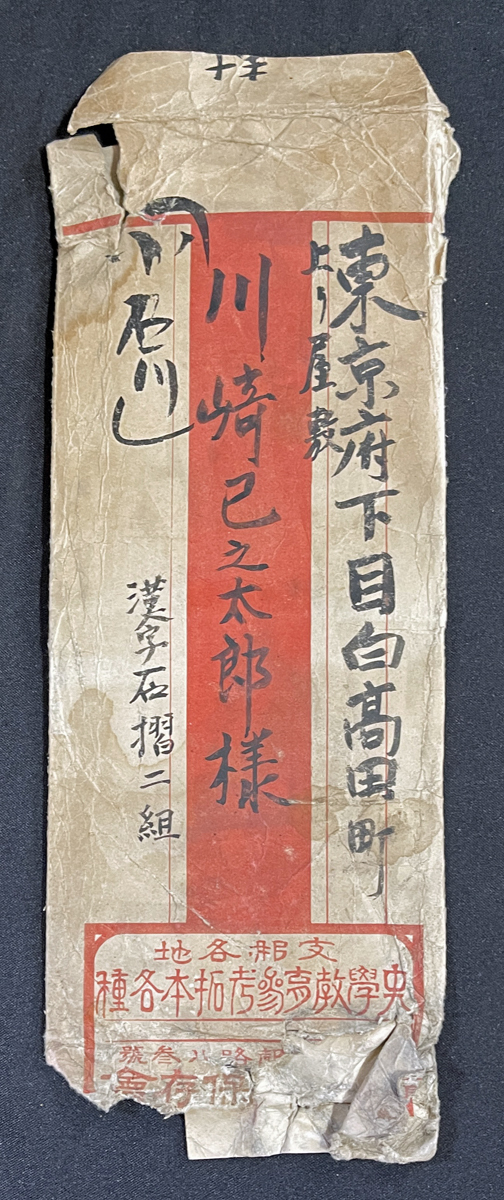 東京府下目白高田町
上り屋敷
川崎已之太郎様
小石川
漢字石摺二組
地各部支
種各本拓考參育教學史
號叁八路
會存保